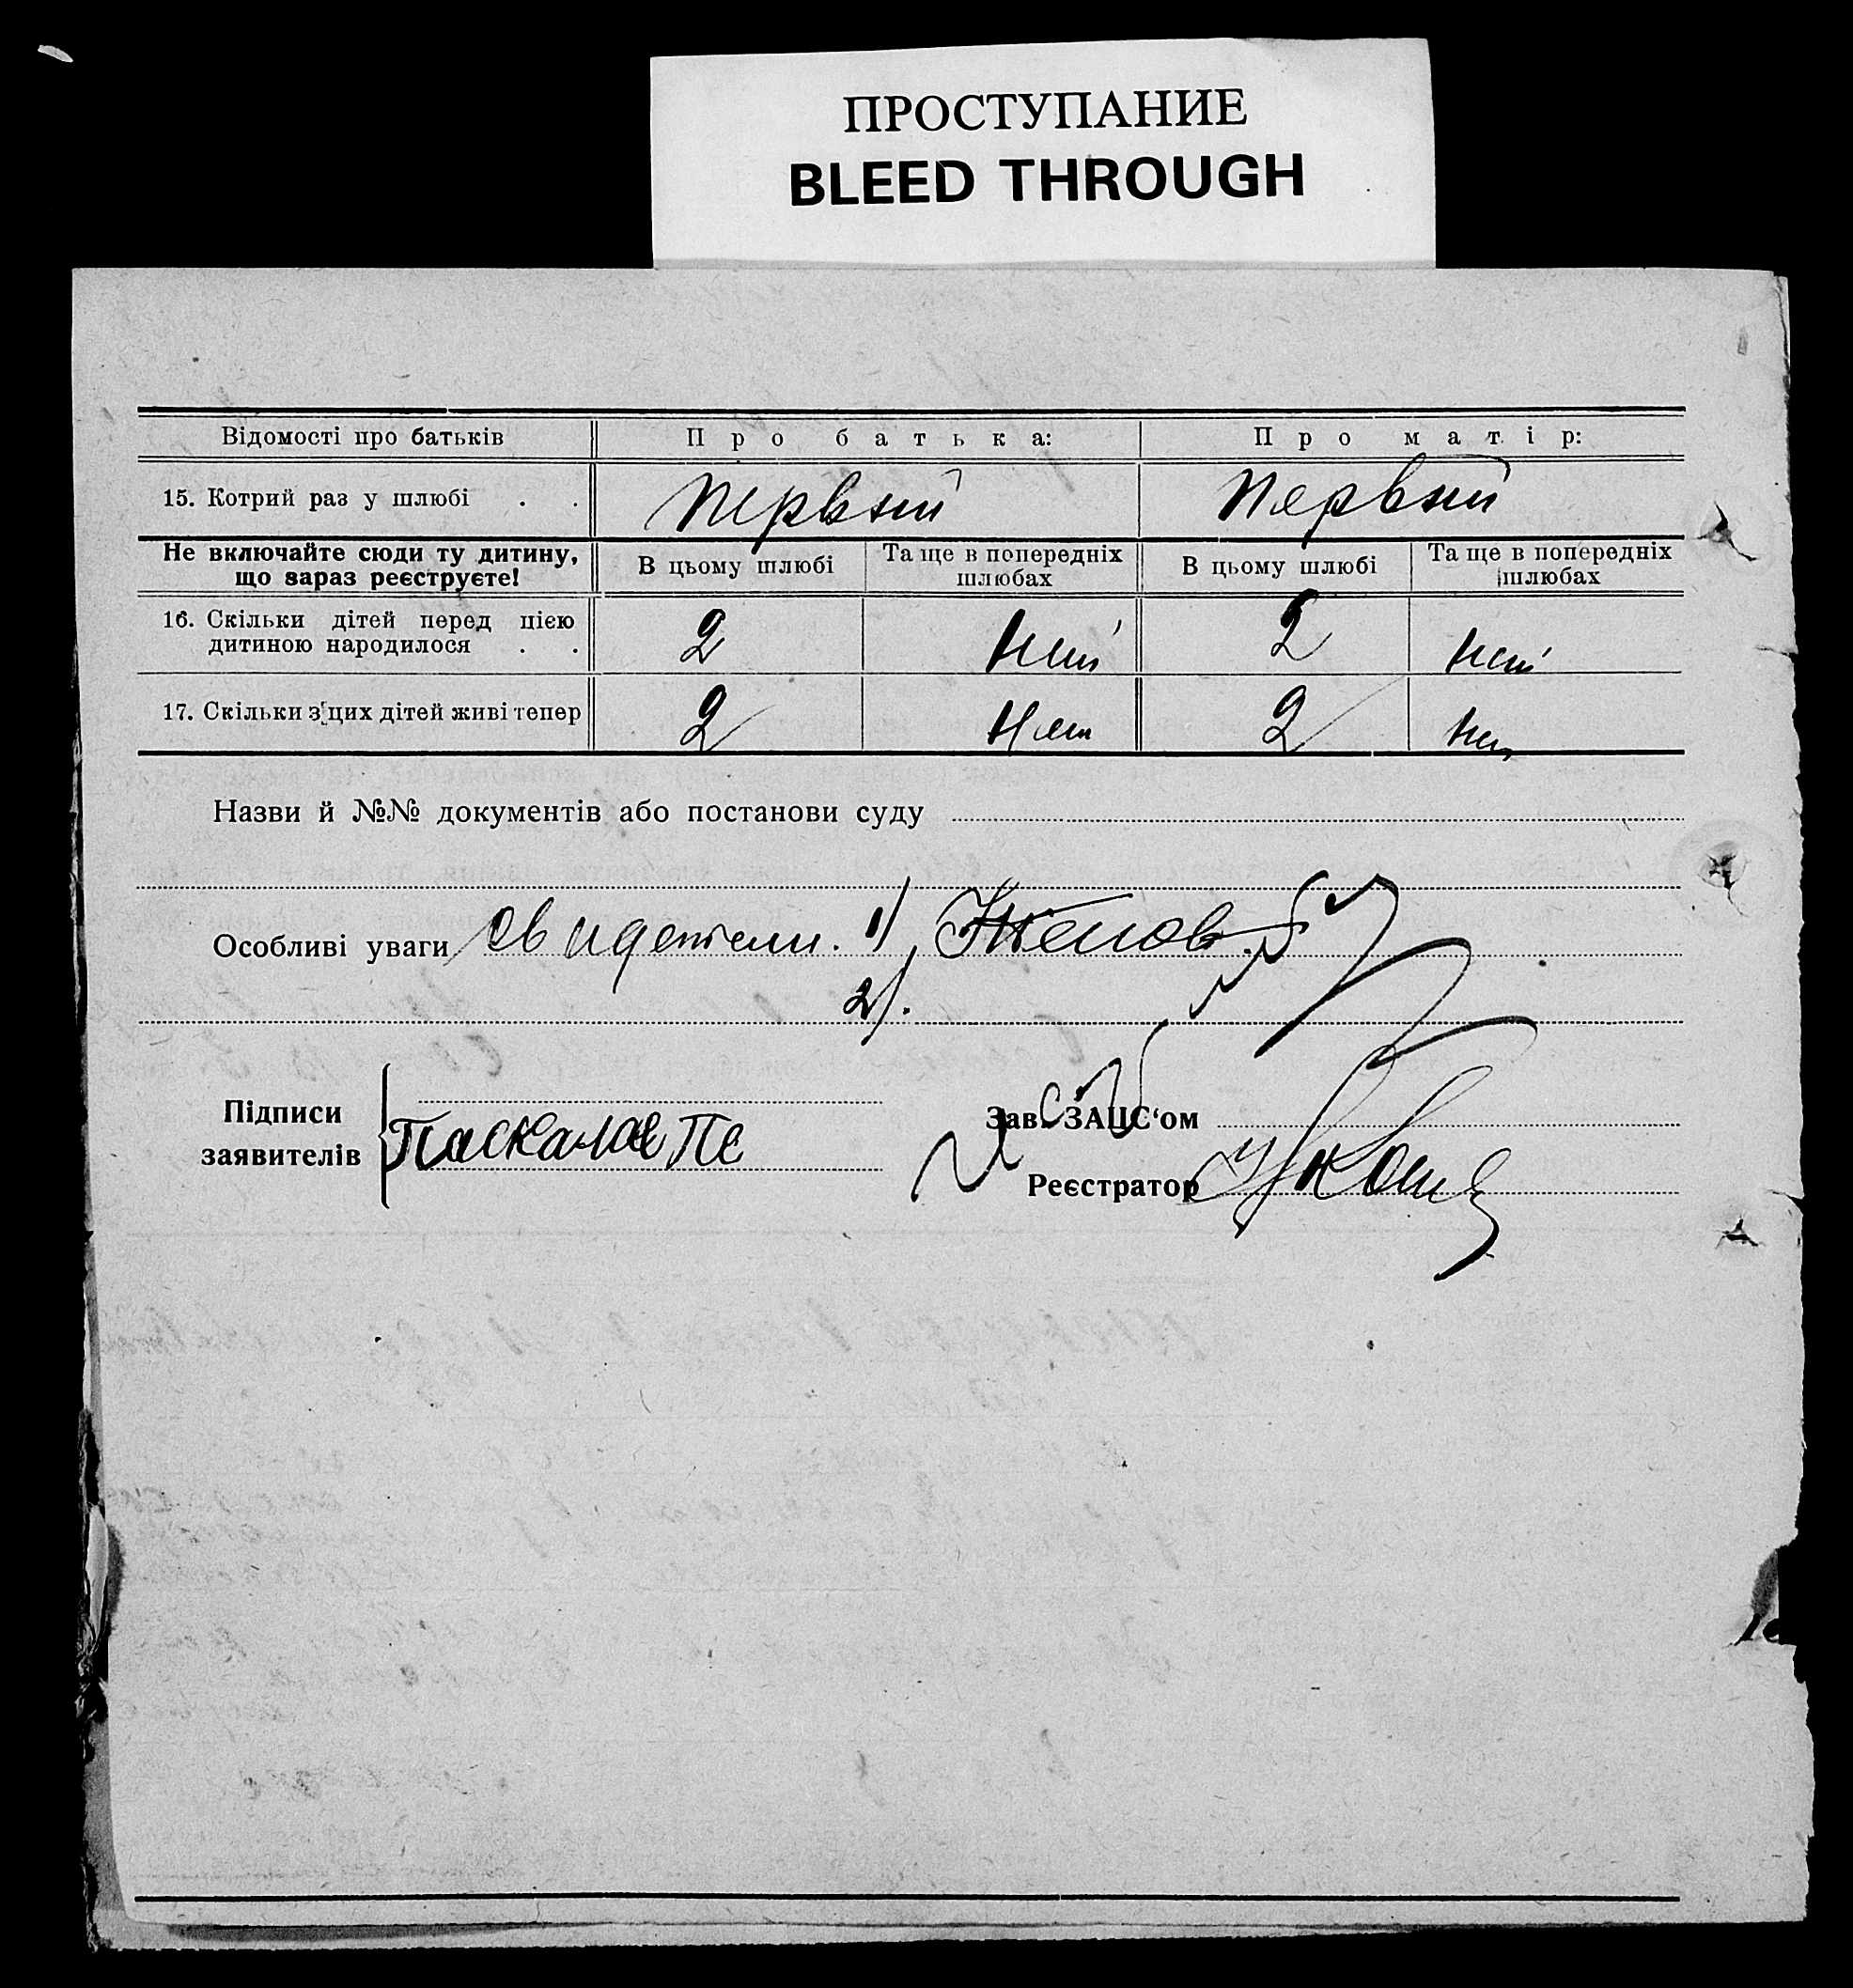 ПРОСТУПАНИЕ
BLEED THROUGH
Відомості про батьків Про батька: Про матір:
15. Котрий раз у шлюбі . . Первый Первый
Не включайте сюди ту дитину, що зараз реєструєте! В цьому шлюбі Та ще в попередніх шлюбах В цьому шлюбі Та ще в попередніх шлюбах
16. Скільки дітей перед цією
дитиною народилося . . 2 нет 2 нет
17. Скільки з цих дітей живі тепер 2 нет 2 нет
Назви й №№ документів або постанови суду
Особливі уваги свидетели. 1)
2).
Підписи заявителів
Зав. ЗАЦС‘ом
Реєстратор